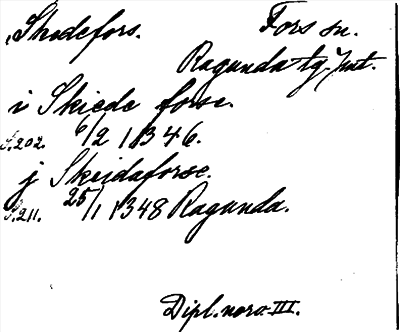 Skedefors. Fors sn.
Ragunda tg. Jmt.
i Skiede forse.
S.202. 6/2 1346.
j Skeidaforse.
S.211. 25/1 1348 Ragunda.
Dipl. norv. III.